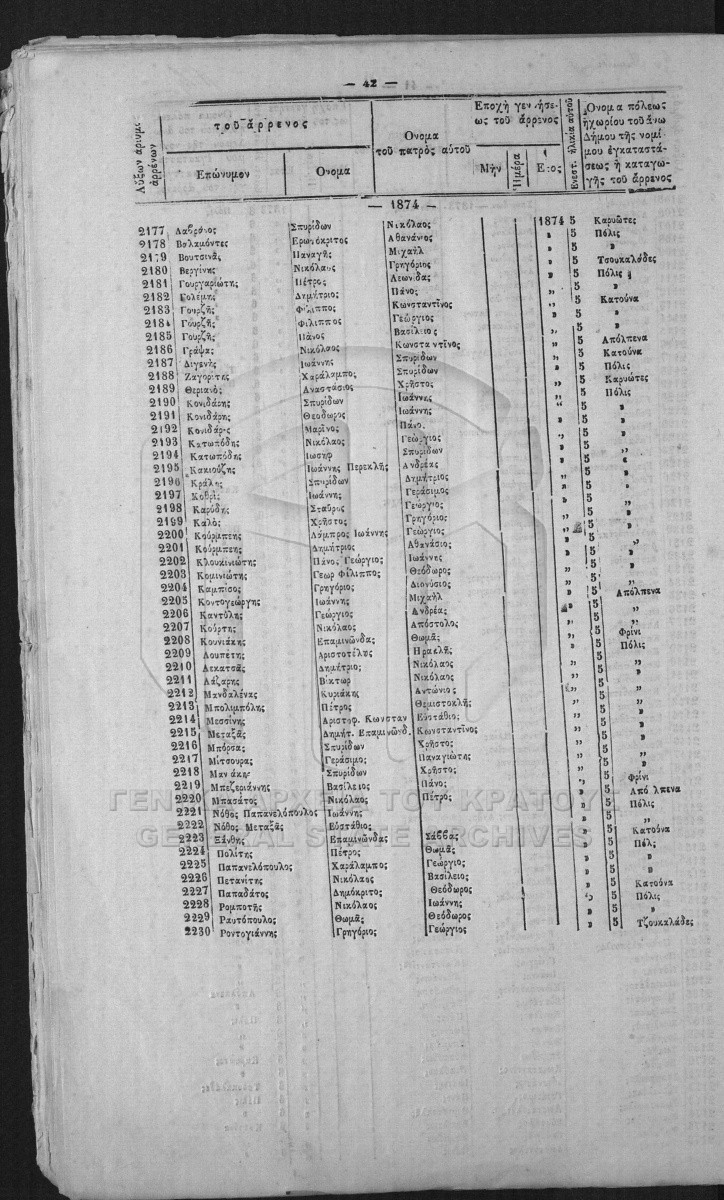 — 42 —
Αὔξων ἀριθμ. ἀρρένων | τοῦ ἄρρενος | Ονομα τοῦ πατρὸς αὐτοῦ | Εποχὴ γεννήσεως τοῦ ἄρρενος | Ενεστ. ἡλικία αὐτοῦ | Ονομα πόλεως ἢ χωρίου τοῦ ἄνω Δήμου τῆς νομίμου ἐγκαταστάσεως ἢ καταγωγῆς τοῦ ἄρρενος
Επώνυμον | Ονομα | Μὴν | Ημέρα | Ετος
— 1874 —
2177 Λαβράνος Σπυρίδων Νικόλαος 1874 5 Καρυῶτες
2178 Βαλαμόντες Ερωτόκριτος Αθανάσιος „ 5 Πόλις
2179 Βουτσινᾶς Παναγῆς Μιχαὴλ „ 5 „
2180 Βεργίνης Νικόλαος Γρηγόριος „ 5 Τσουκαλάδες
2181 Γουργαριώτης Πέτρος Λεωνίδας „ 5 Πόλις
2182 Γολέμης Δημήτριος Πάνος „ 5 „
2183 Γουρζῆς Φίλιππος Κωνσταντῖνος „ 5 Κατούνα
2184 Γουρζῆς Φίλιππος Γεώργιος „ 5 „
2185 Γουρζῆς Πάνος Βασίλειος „ 5 „
2186 Γράψας Νικόλαος Κωνσταντῖνος „ 5 Απόλπενα
2187 Διγενὴς Ιωάννης Σπυρίδων „ 5 Κατούνα
2188 Ζαγορίτης Χαράλαμπος Σπυρίδων „ 5 Πόλις
2189 Θεριανὸς Αναστάσιος Χρῆστος „ 5 Καρυώτες
2190 Κονιδάρης Σπυρίδων Ιωάννης „ 5 Πόλις
2191 Κονιδάρης Θεόδωρος Ιωάννης „ 5 „
2192 Κονιδάρης Μαρῖνος Πάνος „ 5 „
2193 Κατωπόδης Νικόλαος Γεώργιος „ 5 „
2194 Κατωπόδης Ιωσὴφ Σπυρίδων „ 5 „
2195 Κακιούζης Ιωάννης Περεκλῆς Ανδρέας „ 5 „
2196 Κράλης Σπυρίδων Δημήτριος „ 5 „
2197 Ιωάννης Γεράσιμος „ 5 „
2198 Καρύδης Σταῦρος Γεώργιος „ 5 „
2199 Καλὸς Χρῆστος Γρηγόριος „ 5 „
2200 Κούρμπεης Λάμπρος Ιωάννης Γεώργιος „ 5 „
2201 Κούρμπεης Δημήτριος Αθανάσιος „ 5 „
2202 Κλουκινιώτης Πάνος Γεώργιος Ιωάννης „ 5 „
2203 Κομινιώτης Γεωρ Φίλιππος Θεόδωρος „ 5 „
2204 Καμπίσος Γρηγόριος Διονύσιος „ 5 „
2205 Κοντογεώργης Ιωάννης Μιχαὴλ „ 5 Απόλπενα
2206 Καντύλης Γεώργιος Ανδρέας „ 5 „
2207 Κούρτης Νικόλαος Απόστολος „ 5 „
2208 Κουνιάκης Επαμινώνδας Θωμᾶς „ 5 Φρίνι
2209 Λουπέτης Αριστοτέλης Ηρακλῆς „ 5 Πόλις
2210 Λεκατσᾶς Δημήτριος Νικόλαος „ 5 „
2211 Λάζαρης Βίκτωρ Νικόλαος „ 5 „
2212 Μανδαλένας Κυριάκης Αντώνιος „ 5 „
2213 Μπολιμπόλης Πέτρος Θεμιστοκλῆς „ 5 „
2214 Μεσσίνης Αριστοφ. Κωνσταν Εὐστάθιος „ 5 „
2215 Μεταξᾶς Δημήτ. Επαμινώνδ. Κωνσταντῖνος „ 5 „
2216 Μπόρσας Σπυρίδων Χρῆστος „ 5 „
2217 Μίτσουρας Γεράσιμος Παναγιώτης „ 5 „
2218 Μανάκης Σπυρίδων Χρῆστος „ 5 „
2219 Μπεζεριάννης Βασίλειος Πάνος „ 5 Φρίνι
2220 Μπασάτος Νικόλαος Πέτρος „ 5 Απόλπενα
2221 Νόθος Παπανελόπουλος Ιωάννης „ 5 Πόλις
2222 Νόθος Μεταξᾶς Εὐστάθιος „ 5 „
2223 Ξάνθης Επαμινῶνδας Σάββας „ 5 Κατούνα
2224 Πολίτης Πέτρος Θωμᾶς „ 5 Πόλις
2225 Παπανελόπουλος Χαράλαμπος Γεώργιος „ 5 „
2226 Πετανίτης Νικόλαος Βασίλειος „ 5 „
2227 Παπαδάτος Δημόκριτος Θεόδωρος „ 5 Κατούνα
2228 Ρομποτῆς Νικόλαος Ιωάννης „ 5 Πόλις
2229 Ραυτόπουλος Θωμᾶς Θεόδωρος „ 5 „
2230 Ροντογιάννης Γρηγόριος Γεώργιος „ 5 Τζουκαλάδες
ΓΕΝΙΚΑ ΑΡΧΕΙΑ ΤΟΥ ΚΡΑΤΟΥΣ
GENERAL STATE ARCHIVES